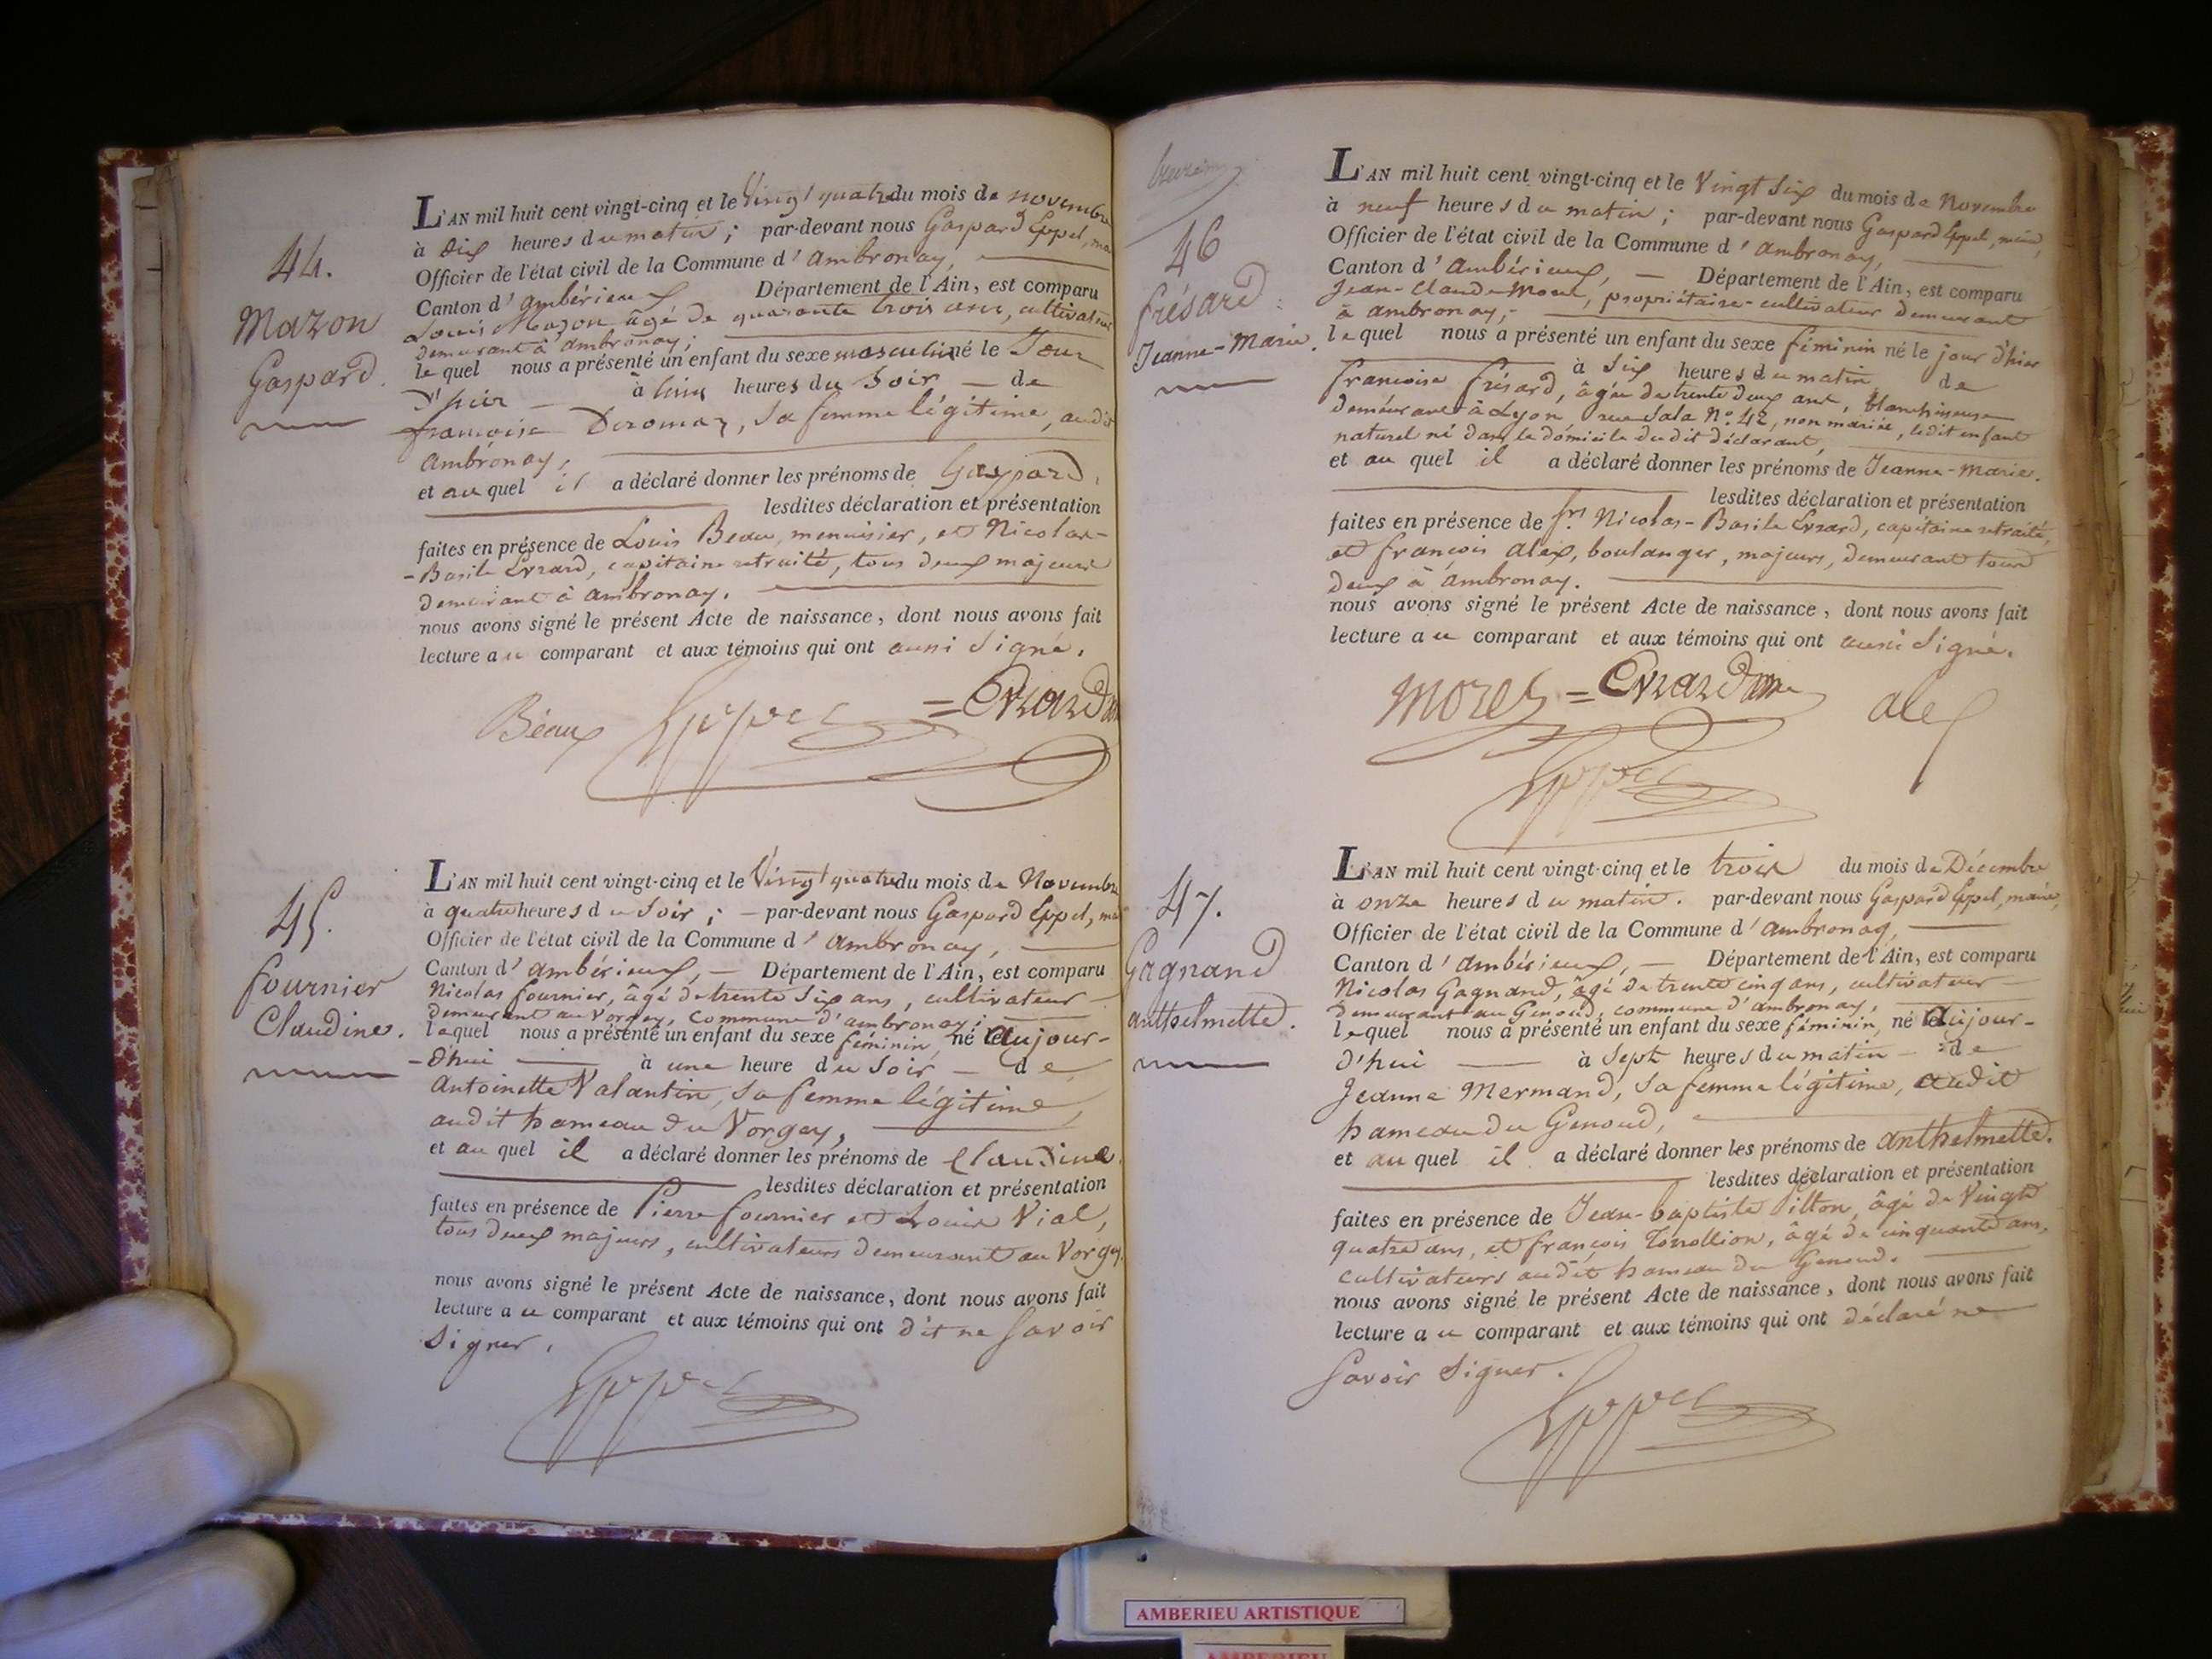 44.
Mazon
Gaspard.
L'AN mil huit cent vingt-cinq et le Vingt quatre du mois de novembre
à dix heures du matin ; par-devant nous Gaspard Eppel,
Officier de l'état civil de la Commune d'ambronay,
Canton d'ambérieux Département de l'Ain, est comparu
Louis Mazon, âgé de quarante trois ans, cultivateur
demeurant à ambronay ;
lequel nous a présenté un enfant du sexe masculin né le Jour
d'hier à cinq heures du soir — de
françoise Deromaz, sa femme légitime, audit
ambronay,
et au quel il a déclaré donner les prénoms de Gaspard,
lesdites déclaration et présentation
faites en présence de Louis Beau, menuisier, et Nicolas-
-Basile Evrard, capitaine retraité, tous deux majeurs
demeurant à ambronay.
nous avons signé le présent Acte de naissance, dont nous avons fait
lecture au comparant et aux témoins qui ont aussi signé.
Béaux Eppel = Evrard
45.
fournier
Claudine.
L'AN mil huit cent vingt-cinq et le Vingt quatre du mois de Novembre
à quatre heures du soir ; — par-devant nous Gaspard Eppel,
Officier de l'état civil de la Commune d'ambronay,
Canton d'ambérieux, — Département de l'Ain, est comparu
Nicolas fournier, âgé de trente six ans, cultivateur
demeurant au Vorgey, commune d'ambronay ;
lequel nous a présenté un enfant du sexe féminin, né le aujour-
-d'hui à une heure du soir — de
Antoinette Valantin, sa femme légitime,
audit hameau du Vorgey,
et au quel il a déclaré donner les prénoms de Claudine.
lesdites déclaration et présentation
faites en présence de Pierre fournier et Louis Vial,
tous deux majeurs, cultivateurs demeurant au Vorgey.
nous avons signé le présent Acte de naissance, dont nous avons fait
lecture au comparant et aux témoins qui ont dit ne savoir
signer.
Eppel
46
frésard
Jeanne-Marie.
L'AN mil huit cent vingt-cinq et le Vingt six du mois de Novembre
à neuf heures du matin ; par-devant nous Gaspard Eppel, maire,
Officier de l'état civil de la Commune d'ambronay,
Canton d'ambérieux, — Département de l'Ain, est comparu
Jean-Claude Morel, propriétaire-cultivateur demeurant
à ambronay,
lequel nous a présenté un enfant du sexe féminin né le jour d'hier
à six heures du matin de
françoise frésard, âgée de trente deux ans, blanchisseuse
demeurant à Lyon rue Sala No. 42, non mariée, ledit enfant
naturel né dans le domicile dudit déclarant,
et au quel il a déclaré donner les prénoms de Jeanne-Marie.
lesdites déclaration et présentation
faites en présence de Nicolas-Basile Evrard, capitaine retraité,
et françois alex, boulanger, majeurs, demeurant tous
deux à ambronay.
nous avons signé le présent Acte de naissance, dont nous avons fait
lecture au comparant et aux témoins qui ont aussi signé.
Morel = Evrard alex
Eppel
47.
Gagnand
anthelmette.
L'AN mil huit cent vingt-cinq et le trois du mois de Décembre
à onze heures du matin. par-devant nous Gaspard Eppel, maire,
Officier de l'état civil de la Commune d'ambronay,
Canton d'ambérieux, — Département de l'Ain, est comparu
Nicolas Gagnand, âgé de trente cinq ans, cultivateur
demeurant au Genoud, commune d'ambronay,
lequel nous a présenté un enfant du sexe féminin, né le aujour-
d'hui à sept heures du matin — de
Jeanne Mermand, sa femme légitime, audit
hameau du Genoud,
et au quel il a déclaré donner les prénoms de anthelmette.
lesdites déclaration et présentation
faites en présence de Jean-baptiste Pitton, âgé de Vingt
quatre ans, et françois Tonollion, âgé de cinquante ans,
cultivateurs audit hameau du Genoud.
nous avons signé le présent Acte de naissance, dont nous avons fait
lecture au comparant et aux témoins qui ont déclaré ne
savoir signer.
Eppel
AMBERIEU ARTISTIQUE
AMBERIEU